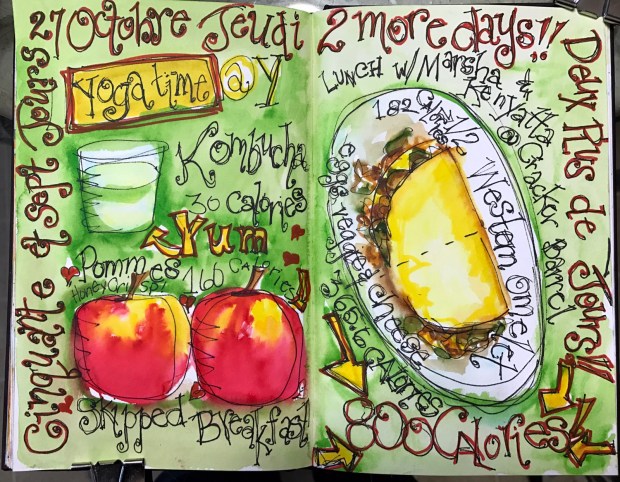 27 Octobre Jeudi
Cinquante et Sept Jours
Yoga time @ Y
Kombucha
30 calories
Yum
Pommes
Honey Crisp
160 Calories
Skipped Breakfast
2 more days!!
Deux Plus de Jours!!
Lunch w/ Marsha &
Kenyatta
@ Cracker Barrel
1/2 Western Omelet
eggs veggies cheese
365.6 Calories
800 Calories